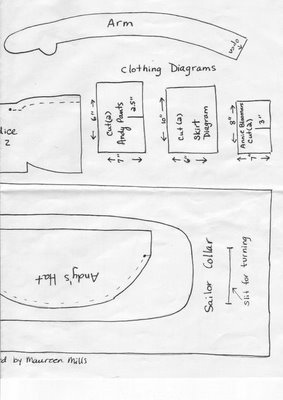 Arm
Clothing Diagrams
6"
Cut(2)
Andy Pants
2.5"
7"
10"
Cut(2)
Skirt
Diagram
6"
8"
Annie Bloomers
Cut(2)
3"
7"
lice
2
Andy's Hat
Sailor Collar
Slit for turning
ed by Maureen Mills